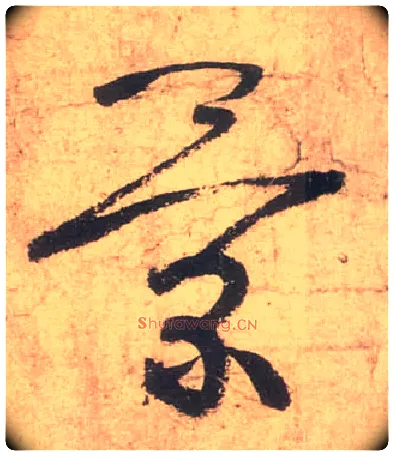 景
Shufawang.CN